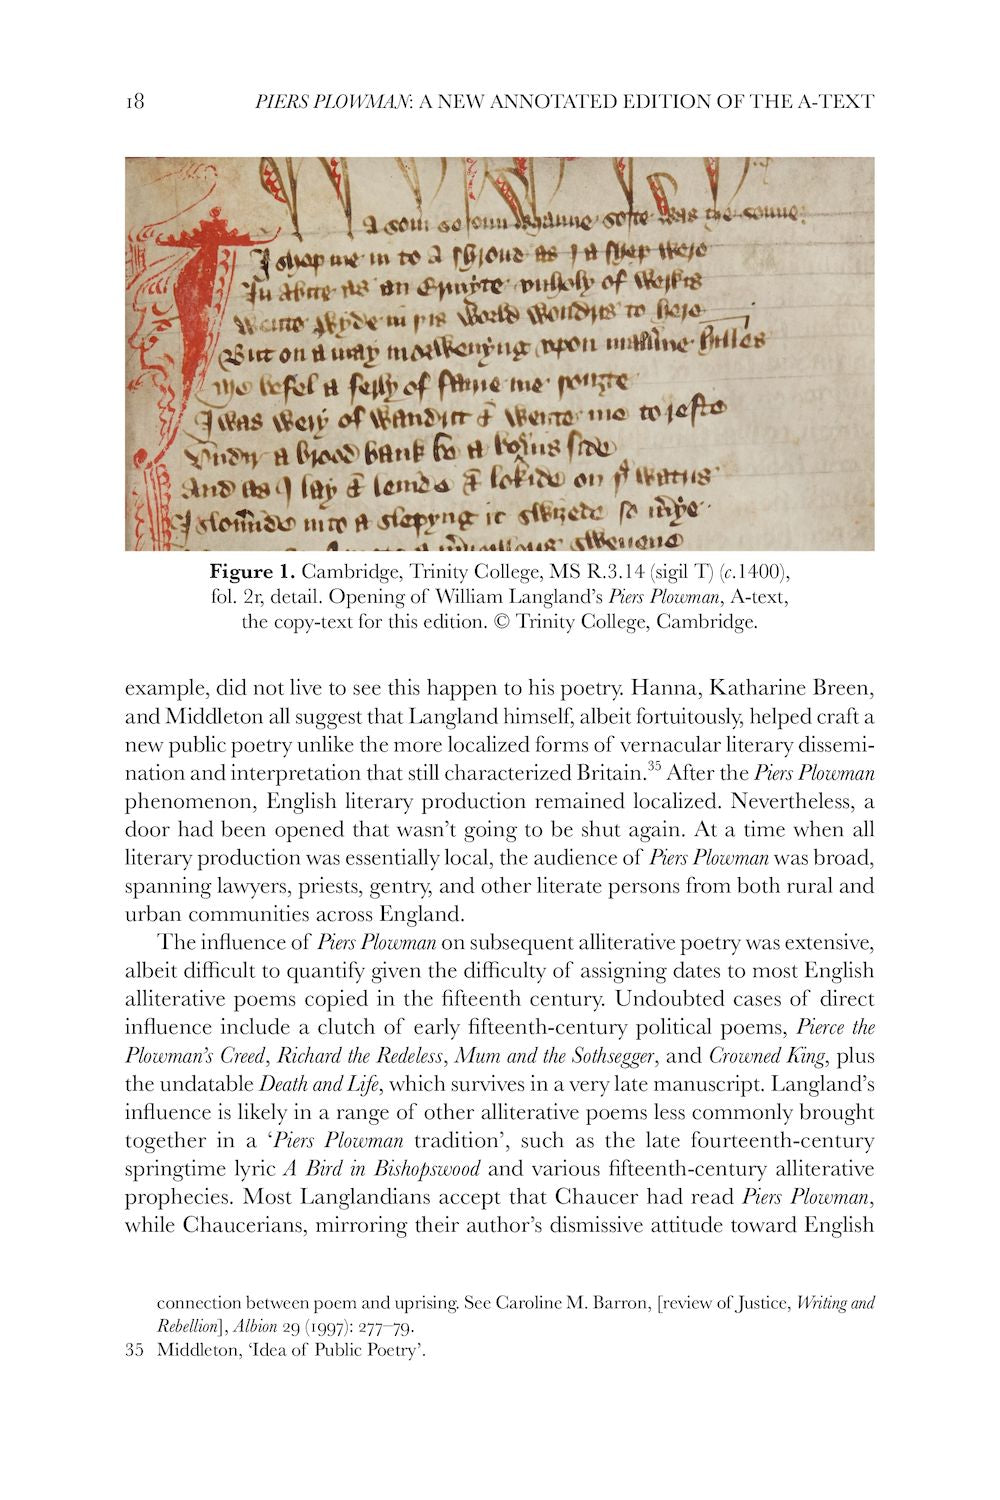 18 PIERS PLOWMAN: A NEW ANNOTATED EDITION OF THE A-TEXT
A som sesoun whanne softe was þe sonne
I shop me in to a shroud as I a shep were
In abite as an Ermyte vnholy of werkis
Wente wyde in þis world wondris to here
But on a may morwenyng vpon maluerne hilles
Me befel a ferly of fairie me þouȝte
I was wery of wandrit & wente me to reste
Vndir a brood bank be a bourne side
And as I lay & lenide & lokide on þe watris
I slomride into a slepyng it so merye
Figure 1. Cambridge, Trinity College, MS R.3.14 (sigil T) (c.1400),
fol. 2r, detail. Opening of William Langland’s Piers Plowman, A-text,
the copy-text for this edition. © Trinity College, Cambridge.
example, did not live to see this happen to his poetry. Hanna, Katharine Breen,
and Middleton all suggest that Langland himself, albeit fortuitously, helped craft a
new public poetry unlike the more localized forms of vernacular literary dissemi-
nation and interpretation that still characterized Britain.35 After the Piers Plowman
phenomenon, English literary production remained localized. Nevertheless, a
door had been opened that wasn’t going to be shut again. At a time when all
literary production was essentially local, the audience of Piers Plowman was broad,
spanning lawyers, priests, gentry, and other literate persons from both rural and
urban communities across England.
The influence of Piers Plowman on subsequent alliterative poetry was extensive,
albeit difficult to quantify given the difficulty of assigning dates to most English
alliterative poems copied in the fifteenth century. Undoubted cases of direct
influence include a clutch of early fifteenth-century political poems, Pierce the
Plowman’s Creed, Richard the Redeless, Mum and the Sothsegger, and Crowned King, plus
the undatable Death and Life, which survives in a very late manuscript. Langland’s
influence is likely in a range of other alliterative poems less commonly brought
together in a ‘Piers Plowman tradition’, such as the late fourteenth-century
springtime lyric A Bird in Bishopswood and various fifteenth-century alliterative
prophecies. Most Langlandians accept that Chaucer had read Piers Plowman,
while Chaucerians, mirroring their author’s dismissive attitude toward English
connection between poem and uprising. See Caroline M. Barron, [review of Justice, Writing and
Rebellion], Albion 29 (1997): 277–79.
35 Middleton, ‘Idea of Public Poetry’.